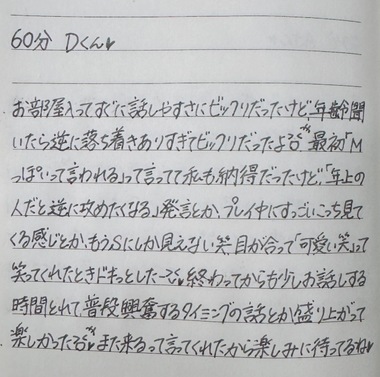 60分 Dくん♥
お部屋入ってすぐに話しやすさにビックリだったけど、年齢聞
いたら逆に落ち着きありすぎてビックリだったよ 最初「M
っぽいって言われる」って言ってて私も納得だったけど、「年上の
人だと逆に攻めたくなる」発言とか、プレイ中にすっごいこっち見て
くる感じとか、もうSにしか見えない笑、目が合って「可愛い笑」って
笑ってくれたときドキっとした〜 終わってからも少しお話しする
時間とれて、普段興奮するタイミングの話とか盛り上がって
楽しかった また来るって言ってくれたから楽しみに待ってるね♥